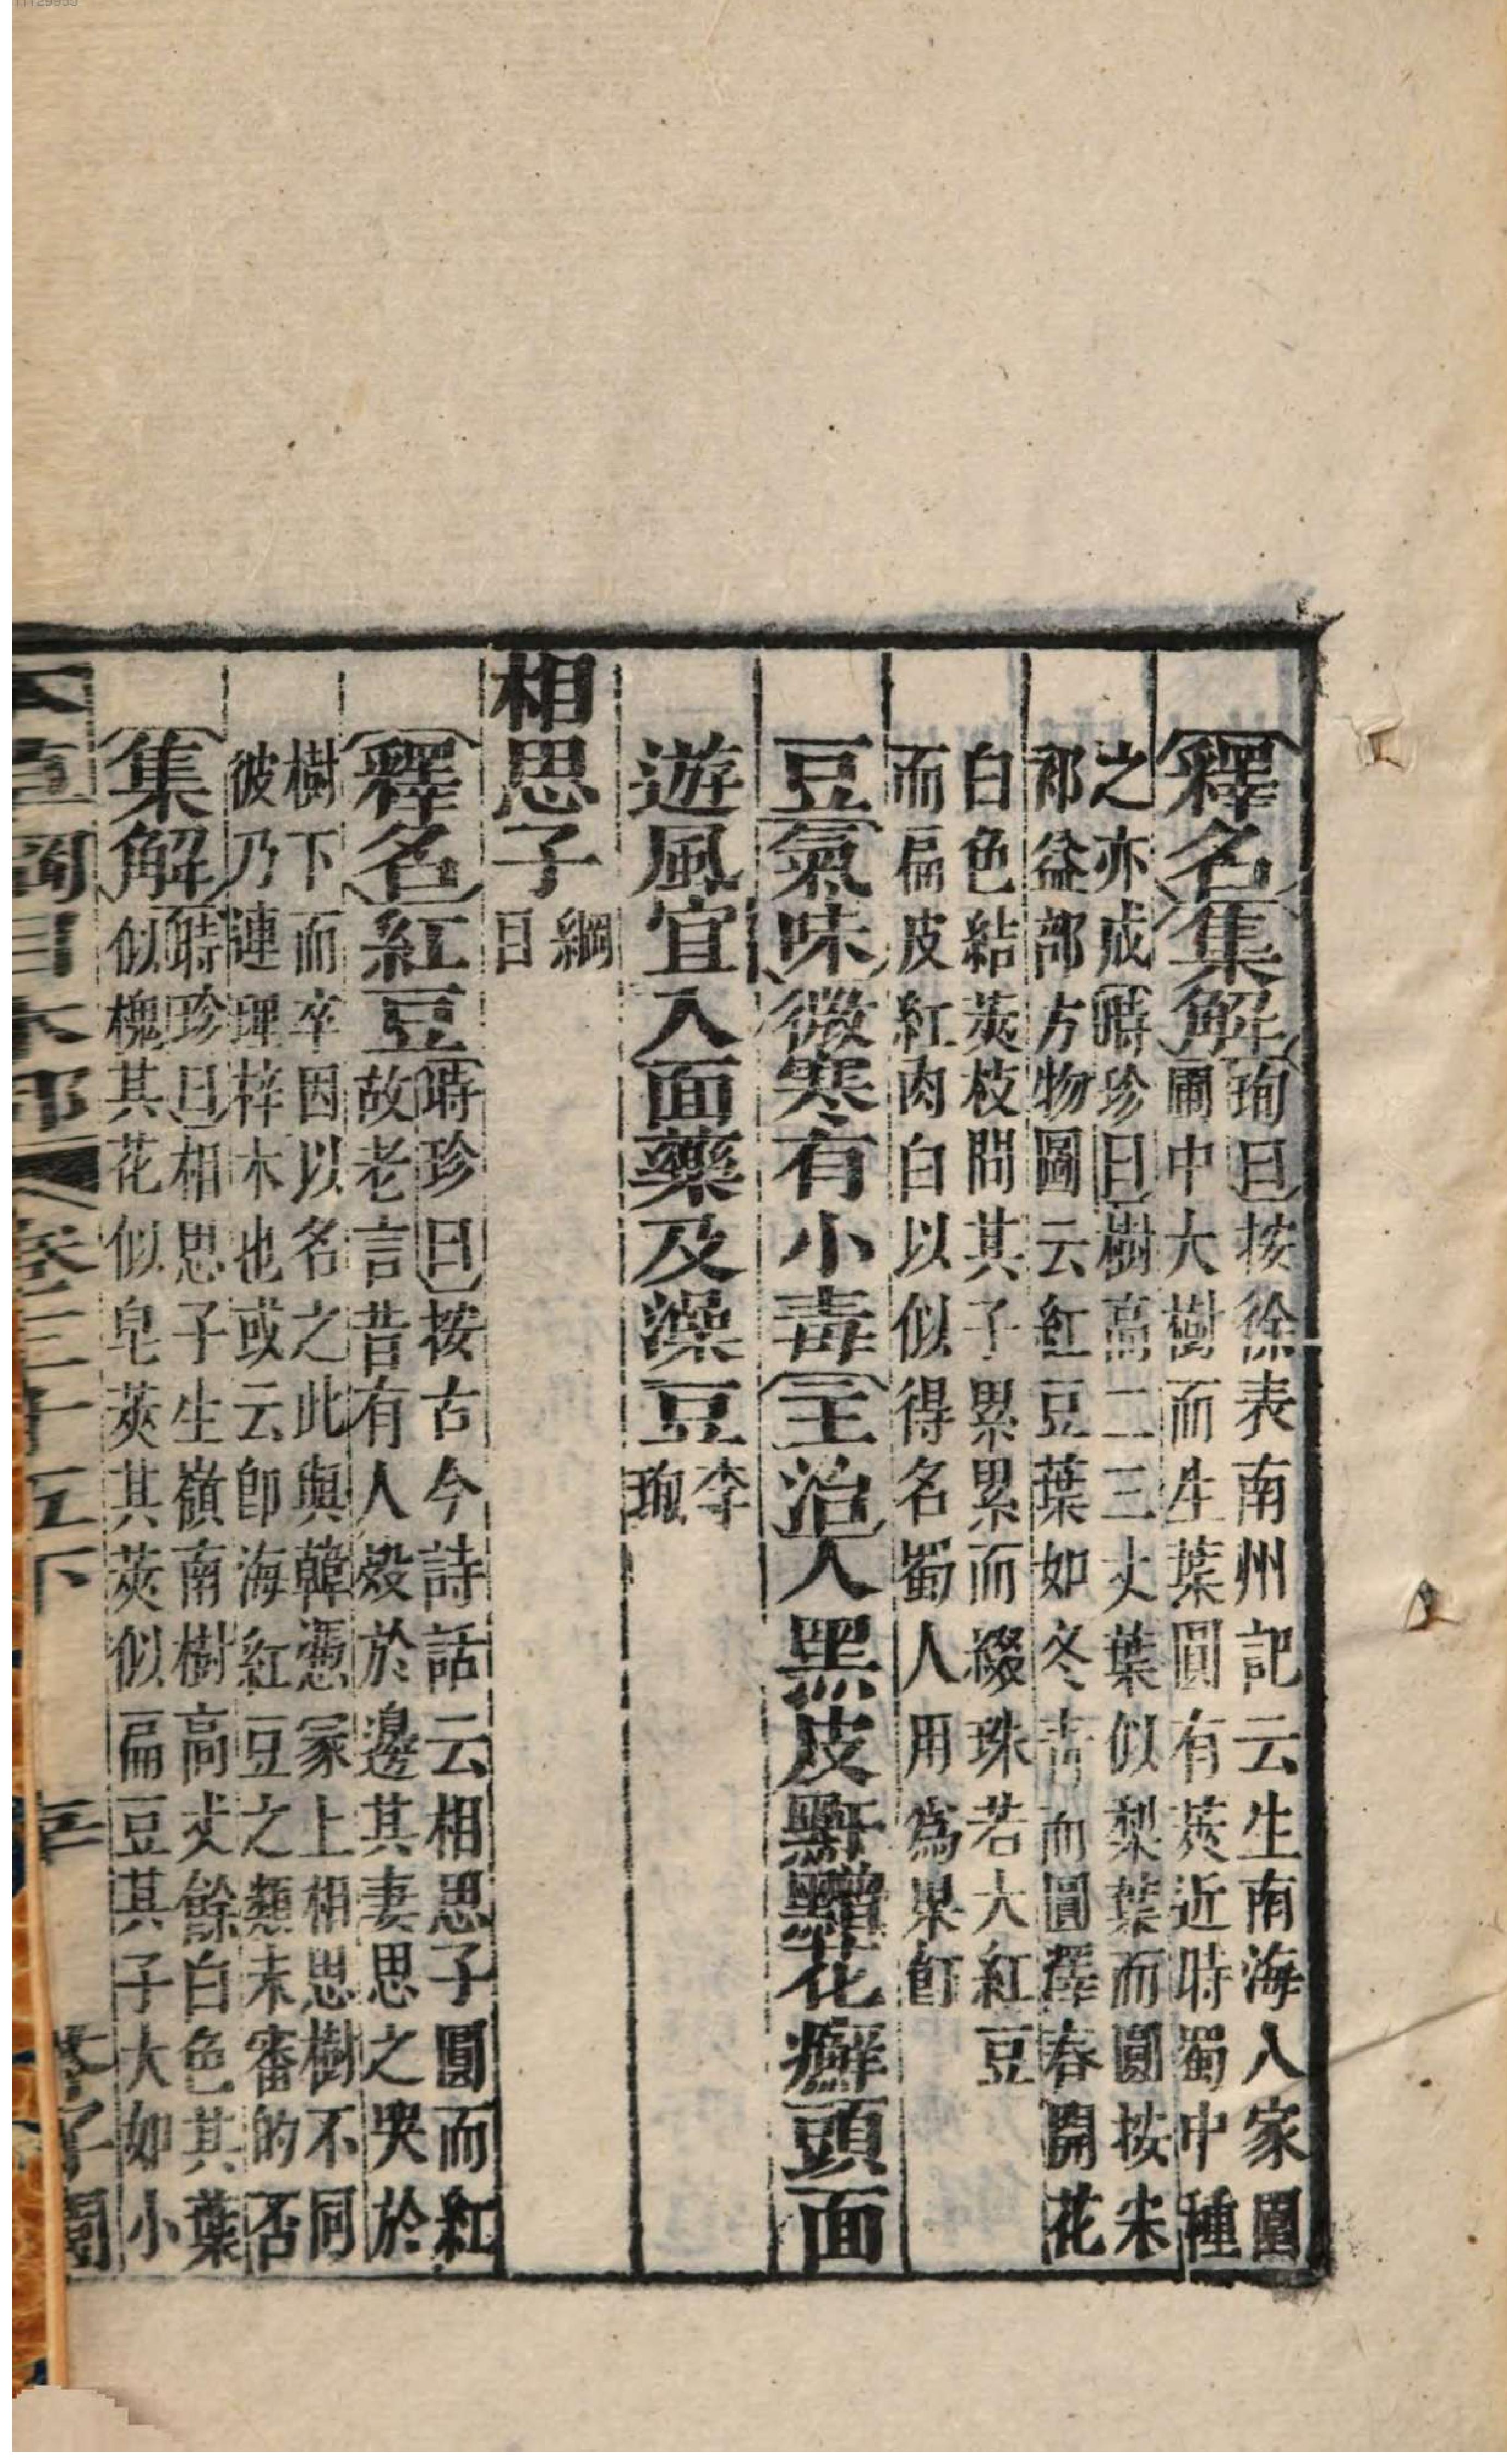 【釋名】【集解】【珣曰】按徐表南州記云生南海人家園
圃中大樹而生葉圓有莢近時蜀中種
之亦成【時珍曰】樹高二三丈葉似梨葉而圓按宋
祁益部方物圖云紅豆葉如冬青而圓澤春開花
白色結莢枝間其子累累而綴珠若大紅豆
而扁皮紅肉白以似得名蜀人用爲果飣
豆【氣味】微寒有小毒【主治】人黑皮𪒟黯花癬頭面
遊風宜入面藥及澡豆李珣
相思子綱目
【釋名】紅豆【時珍曰】按古今詩話云相思子圓而紅
故老言昔有人歿於邊其妻思之哭於
樹下而卒因以名之此與韓憑冢上相思樹不同
彼乃連理梓木也或云卽海紅豆之類未審的否
【集解】【時珍曰】相思子生嶺南樹高丈餘白色其葉
似槐其花似皂莢其莢似扁豆其子大如小
本草綱目木部 卷三十五下 芥子園